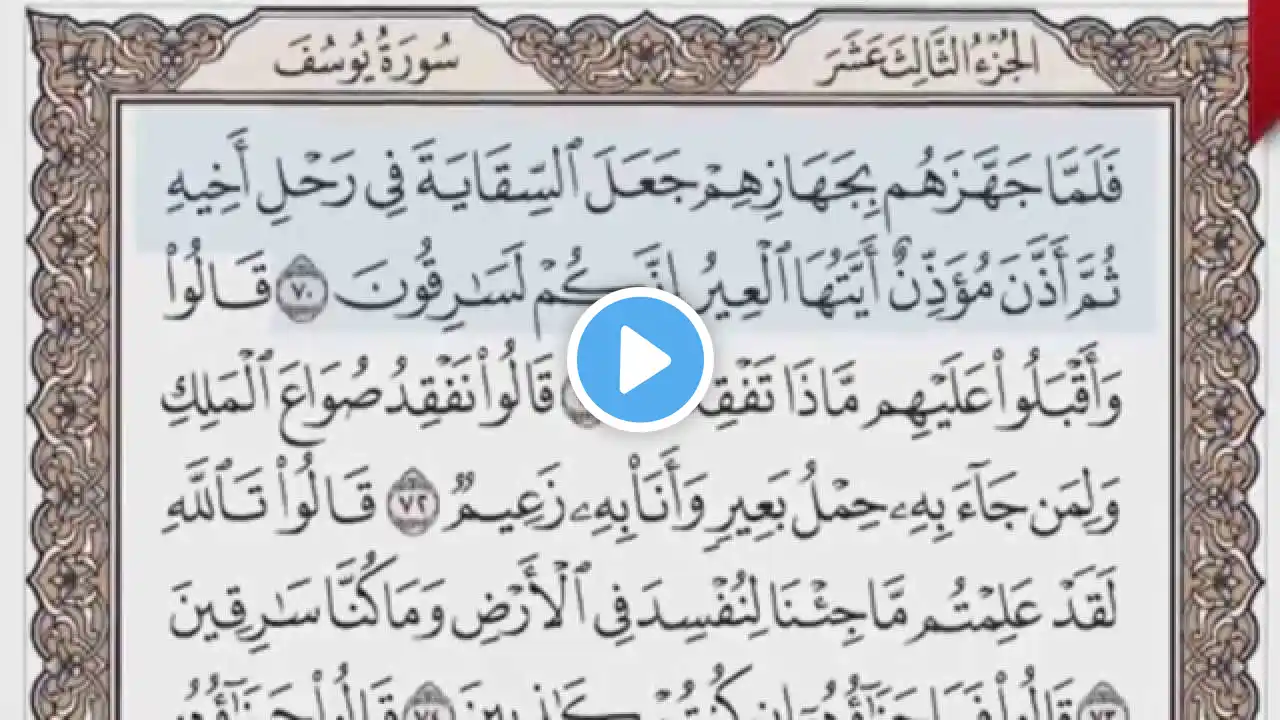 الجُزْءُ الثَّالِثَ عَشَرَ
سُورَةُ يُوسُفَ
فَلَمَّا جَهَّزَهُم بِجَهَازِهِمْ جَعَلَ ٱلسِّقَايَةَ فِي رَحْلِ أَخِيهِ
ثُمَّ أَذَّنَ مُؤَذِّنٌ أَيَّتُهَا ٱلْعِيرُ إِنَّكُمْ لَسَٰرِقُونَ ٧٠ قَالُوا۟
وَأَقْبَلُوا۟ عَلَيْهِم مَّاذَا قَالُوا۟ نَفْقِدُ صُوَاعَ ٱلْمَلِكِ
وَلِمَن جَآءَ بِهِۦ حِمْلُ بَعِيرٍ وَأَنَا۠ بِهِۦ زَعِيمٌ ٧٢ قَالُوا۟ تَٱللَّهِ
لَقَدْ عَلِمْتُم مَّا جِئْنَا لِنُفْسِدَ فِي ٱلْأَرْضِ وَمَا كُنَّا سَٰرِقِينَ
٧٣ قَالُوا۟ فَمَا جَزَٰٓؤُهُۥٓ إِن كُنتُمْ كَٰذِبِينَ ٧٤ قَالُوا۟ جَزَٰٓؤُهُۥ